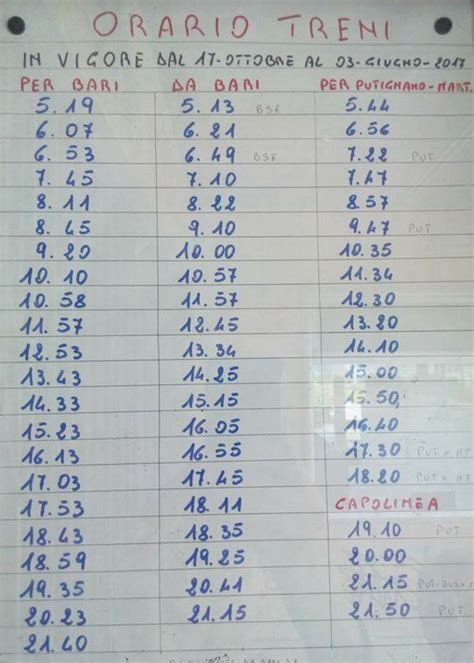 ORARIO TRENI
IN VIGORE DAL 17-OTTOBRE AL 03-GIUGNO-2017
PER BARI DA BARI PER PUTIGNANO-MART.
5.19 5.13 BSE 5.44
6.07 6.21 6.56
6.53 6.49 BSE 7.22 PUT
7.45 7.10 7.47
8.11 8.22 8.57
8.45 9.10 9.47 PUT
9.20 10.00 10.35
10.10 10.57 11.34
10.58 11.57 12.30
11.57 12.45 13.20
12.53 13.34 14.10
13.43 14.25 15.00
14.33 15.15 15.50
15.23 16.05 16.40
16.13 16.55 17.30 PUT
17.03 17.45 18.20 PUT
17.53 18.11 CAPOLINEA
18.43 18.35 19.10 PUT
18.59 19.25 20.00
19.35 20.41 21.15 PUT-BUS
20.23 21.15 21.50 PUT
21.40